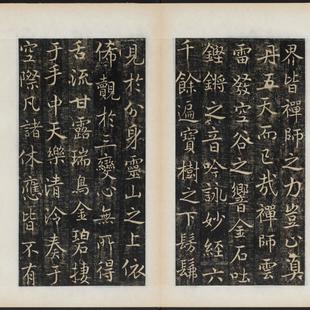 界皆禪師之力豈止真
丹五天而已哉禪師雲
雷發空谷之響金石吐
鏗鏘之音吟詠妙經六
千餘遍寶樹之下髣髴
見於分身靈山之上依
俙覩於三變心無所得
舌流甘露瑞鳥金碧棲
于手中天樂清泠奏于
空際凡諸休應皆不有